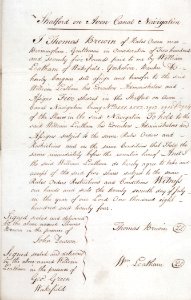 Stratford on Avon Canal Navigation
I Thomas Brewin of Hales Owen near
Birmingham Gentleman in Consideration of Two hundred
and seventy five Pounds paid to me by William
Leatham of Wakefield Yorkshire Banker Do
hereby bargain sell assign and transfer to the said
William Leatham his Executors Administrators and
Assigns Five shares in the Stratford on Avon
Canal Navigation being
of the Shares in the said Navigation To hold to the
said William Leatham his Executors Administrators and
Assigns subject to the same Rules Orders and
Restrictions and on the same Conditions that I held the
same immediately before the execution hereof And I
the said William Leatham do hereby agree to take and
accept of the said five shares subject to the same
Rules Orders Restrictions and Conditions Witness
our hands and seals the twenty seventh day of July
in the year of our Lord One thousand eight
hundred and forty four
Signed sealed and delivered
by the above named Thomas
Brewin in the presence of
John
Thomas Brewin
Signed sealed and delivered
by the above named William
Leatham in the presence of
Geo Green
Wakefield
Wm Leatham